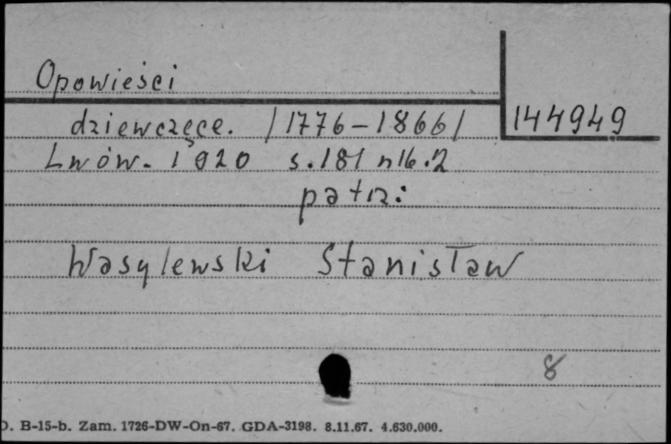 Opowieści
dziewczęce. /1776-1866/ 144949
Lwów. 1920 s. 181 nlb. 2
patrz:
Wasylewski Stanisław
8
D. B-15-b. Zam. 1726-DW-On-67. GDA-3198. 8.11.67. 4.630.000.